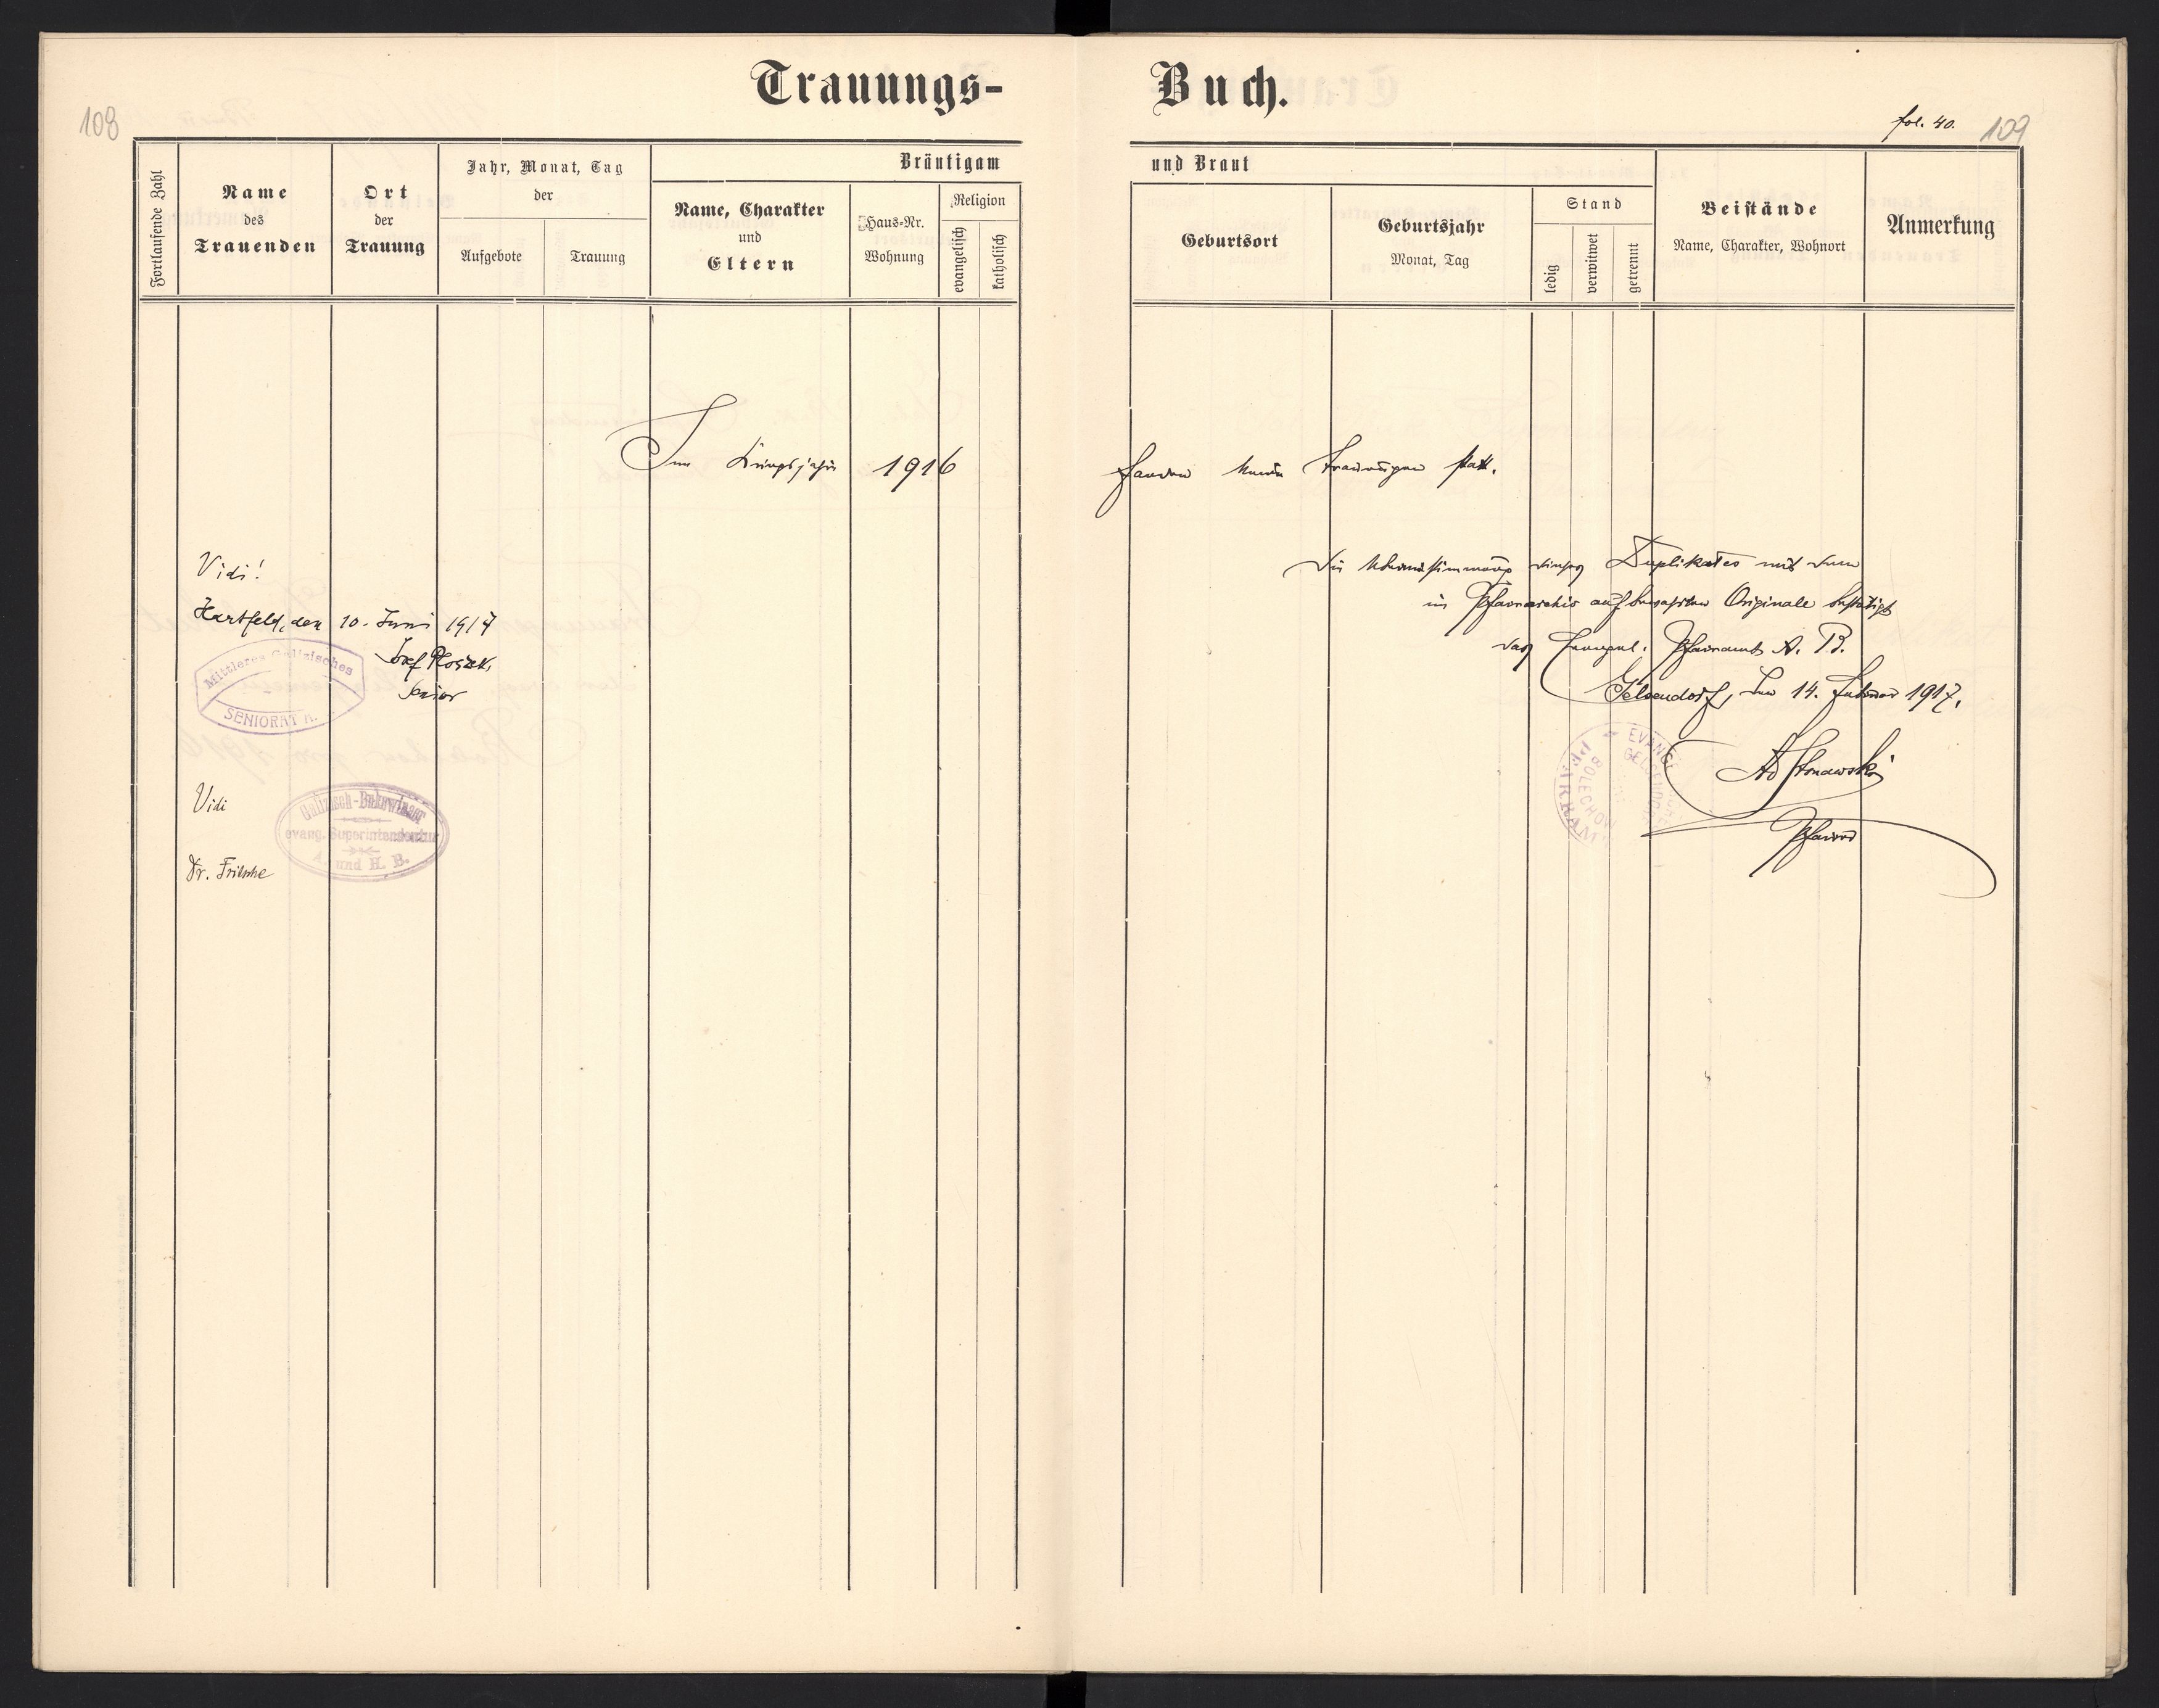 Trauungs-
Buch.
108
fol. 40. 109
Fortlaufende Zahl
Name
des
Trauenden
Ort
der
Trauung
Jahr, Monat, Tag
der
Aufgebote
Trauung
Bräutigam
Name, Charakter
und
Eltern
Haus-Nr.
Wohnung
Religion
evangelisch
katholisch
und Braut
Geburtsort
Geburtsjahr
Monat, Tag
Stand
ledig
verwitwet
getrennt
Beistände
Name, Charakter, Wohnort
Anmerkung
Im Kriegsjahre 1916
fanden keine Trauungen statt.
Vidi!
Hartfeld, den 10. Juni 1917
Josef
Senior
Mittleres Galizisches
SENIORAT A.
Vidi
Galizisch-Bukowinaer
evang. Superintendentur
A. und H. B.
Dr. Fritsche
Die Übereinstimmung dieses Duplikates mit dem
im Pfarrarchiv aufbewahrten Originale bestätigt
das Evangel. Pfarramt A. B.
Gelsendorf, den 14. Februar 1917.
EVANGEL.
PFARRAMT
GELSENDORF
BOLECHOW
Pfarrer